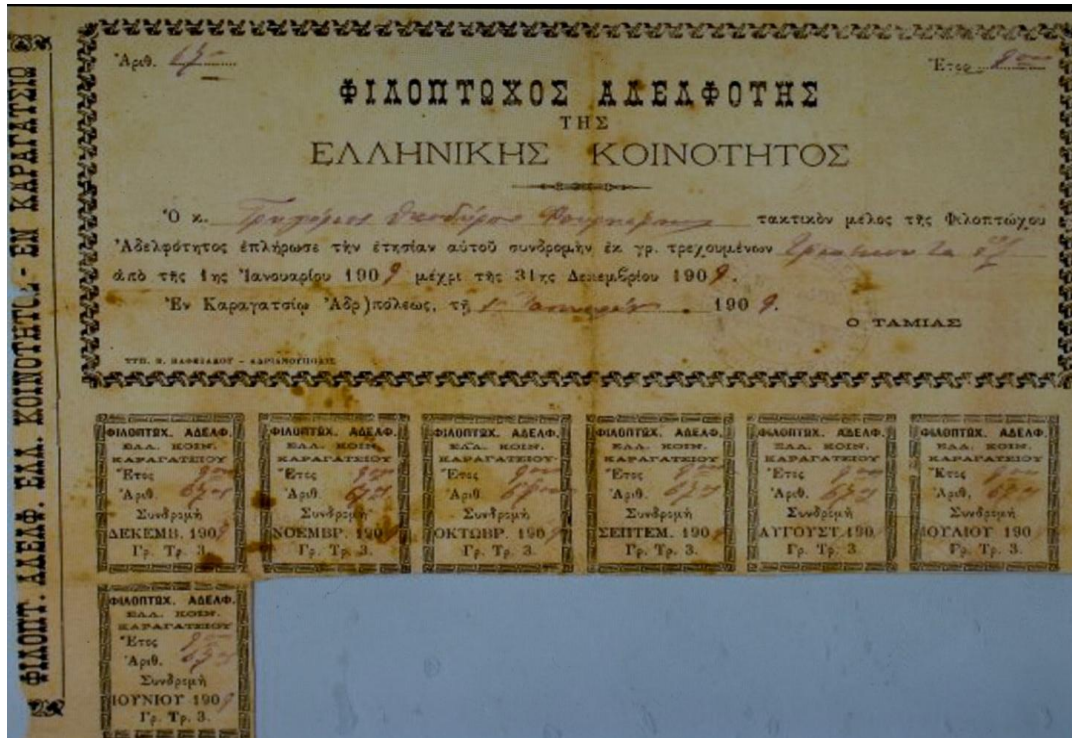 Ἀριθ.
Ἔτος
ΦΙΛΟΠΤΩΧΟΣ ΑΔΕΛΦΟΤΗΣ
ΤΗΣ
ΕΛΛΗΝΙΚΗΣ ΚΟΙΝΟΤΗΤΟΣ
Ὁ κ. τακτικὸν μέλος τῆς Φιλοπτώχου
Ἀδελφότητος ἐπλήρωσε τὴν ἐτησίαν αὐτοῦ συνδρομὴν ἐκ γρ. τρεχουμένων
ἀπὸ τῆς 1ης Ἰανουαρίου 1909 μέχρι τῆς 31ης Δεκεμβρίου 1909.
Ἐν Καραγατσίῳ Ἀδρ)πόλεως, τῇ 1909.
Ο ΤΑΜΙΑΣ
ΦΙΛΟΠΤ. ΑΔΕΛΦ. ΕΛΛ. ΚΟΙΝΟΤΗΤΟΣ - ΕΝ ΚΑΡΑΓΑΤΣΙΩ
ΦΙΛΟΠΤΩΧ. ΑΔΕΛΦ.
ΕΛΛ. ΚΟΙΝ.
ΚΑΡΑΓΑΤΣΙΟΥ
Ἔτος
Ἀριθ.
Συνδρομὴ
ΔΕΚΕΜΒ. 1909
Γρ. Τρ. 3.
ΦΙΛΟΠΤΩΧ. ΑΔΕΛΦ.
ΕΛΛ. ΚΟΙΝ.
ΚΑΡΑΓΑΤΣΙΟΥ
Ἔτος
Ἀριθ.
Συνδρομὴ
ΝΟΕΜΒΡ. 1909
Γρ. Τρ. 3.
ΦΙΛΟΠΤΩΧ. ΑΔΕΛΦ.
ΕΛΛ. ΚΟΙΝ.
ΚΑΡΑΓΑΤΣΙΟΥ
Ἔτος
Ἀριθ.
Συνδρομὴ
ΟΚΤΩΒΡ. 1909
Γρ. Τρ. 3.
ΦΙΛΟΠΤΩΧ. ΑΔΕΛΦ.
ΕΛΛ. ΚΟΙΝ.
ΚΑΡΑΓΑΤΣΙΟΥ
Ἔτος
Ἀριθ.
Συνδρομὴ
ΣΕΠΤΕΜ. 1909
Γρ. Τρ. 3.
ΦΙΛΟΠΤΩΧ. ΑΔΕΛΦ.
ΕΛΛ. ΚΟΙΝ.
ΚΑΡΑΓΑΤΣΙΟΥ
Ἔτος
Ἀριθ.
Συνδρομὴ
ΑΥΓΟΥΣΤ. 190
Γρ. Τρ. 3.
ΦΙΛΟΠΤΩΧ. ΑΔΕΛΦ.
ΕΛΛ. ΚΟΙΝ.
ΚΑΡΑΓΑΤΣΙΟΥ
Ἔτος
Ἀριθ.
Συνδρομὴ
ΙΟΥΛΙΟΥ 190
Γρ. Τρ. 3.
ΦΙΛΟΠΤΩΧ. ΑΔΕΛΦ.
ΕΛΛ. ΚΟΙΝ.
ΚΑΡΑΓΑΤΣΙΟΥ
Ἔτος
Ἀριθ.
Συνδρομὴ
ΙΟΥΝΙΟΥ 1909
Γρ. Τρ. 3.